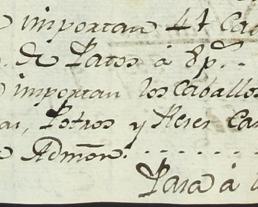 importan 41 Cab
de Patos á 8p.
importan los Caballos
Potros y Reses Ca
Admon.
Pasa á